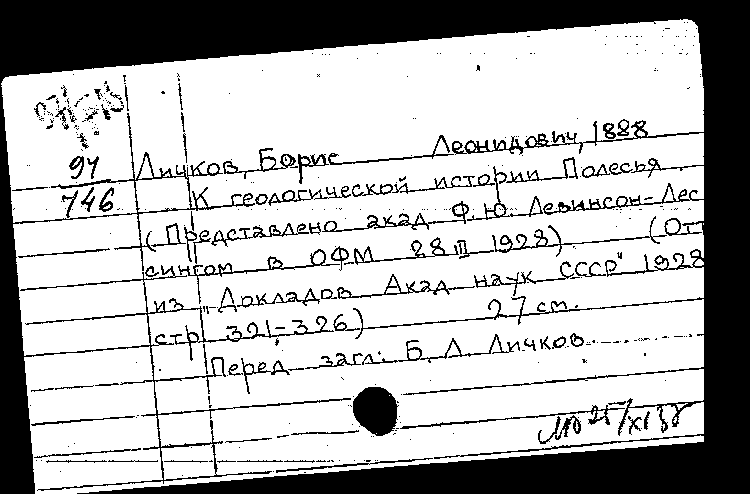 Личков, Борис Леонидович, 1888
91
746
К геологической истории Полесья.
(Представлено акад. Ф. Ю. Левинсон-Лес
сингом в ОФМ 28 III 1928) (Отт
из „Докладов Акад. наук СССР" 1928
стр. 321-326) 27 cm.
Перед загл: Б. Л. Личков